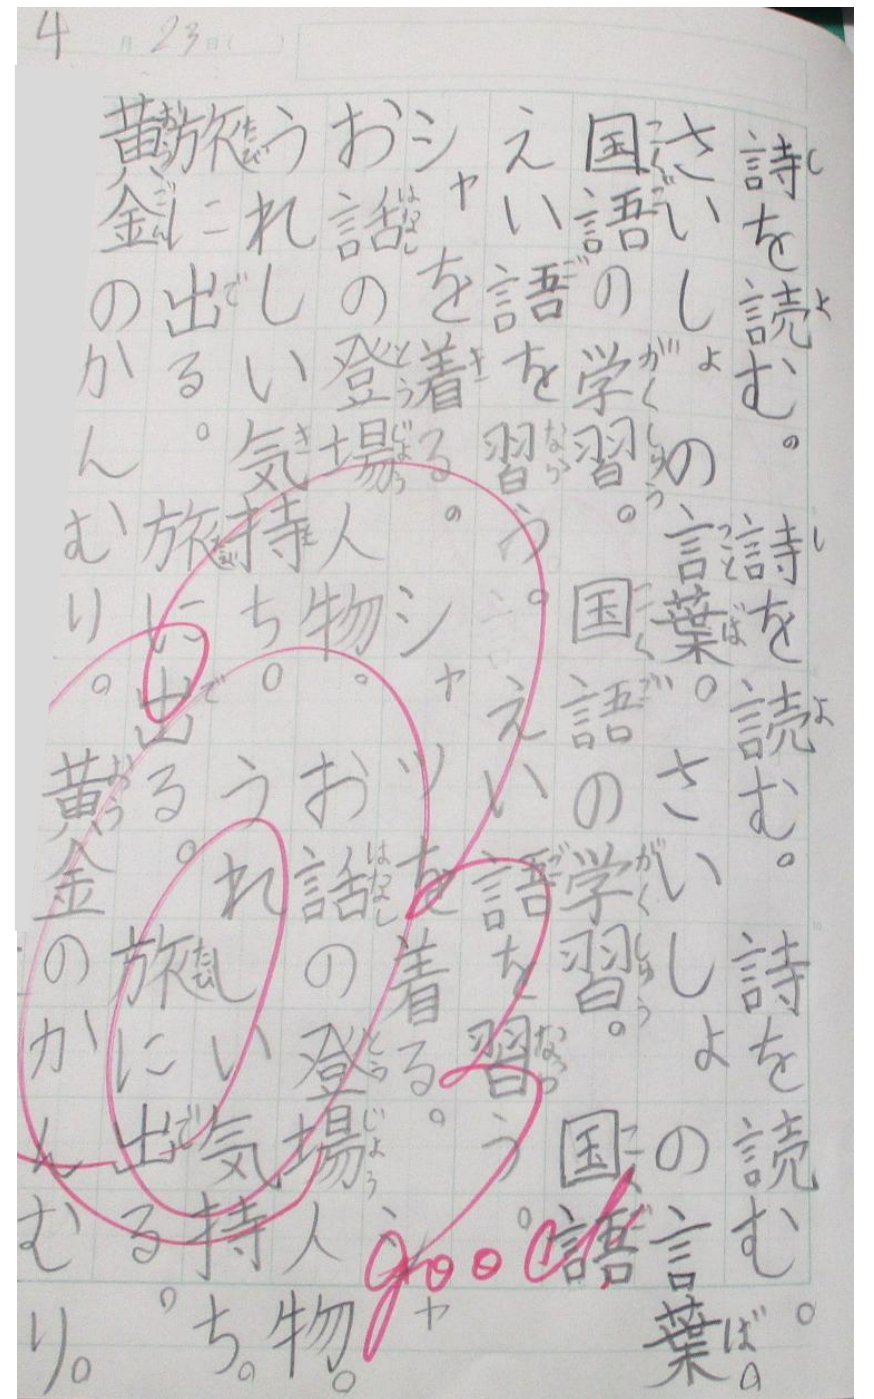 4月23日( )
詩を読む。詩を読む。詩を読む。
さいしょの言葉。さいしょの言葉。
国語の学習。国語の学習。国語
えい語を習う。えい語を習う。
シャを着る。シャツを着る。シャ
お話の登場人物。お話の登場人物。
うれしい気持ち。うれしい気持ち。
旅に出る。旅に出る。旅に出る。
黄金のかんむり。黄金のかんむり。
good